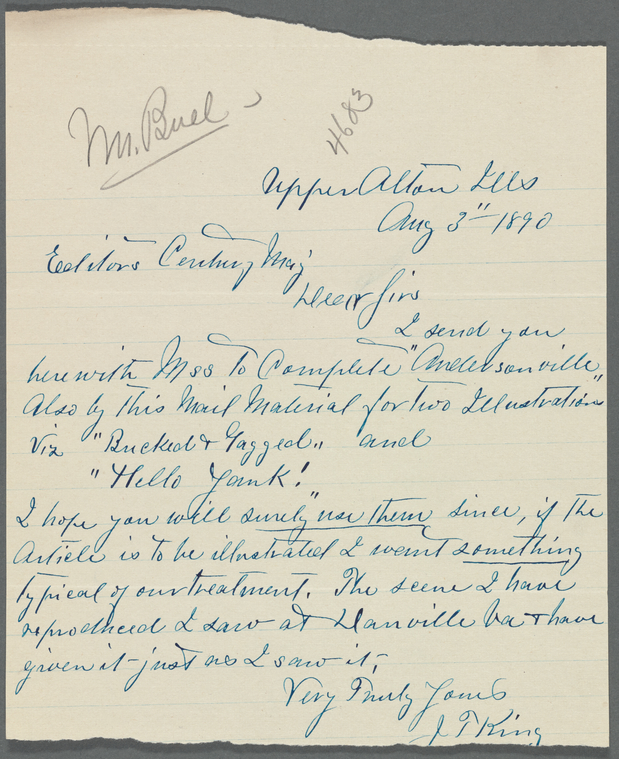 Mr. Buel
4683
Upper Alton Ills
Aug 3" 1890
Editors Century Mag
Dear Sirs
I send you
herewith Mss to Complete "Andersonville"
Also by this Mail Material for two Illustrations
Viz "Bucked & Gagged" and
"Hello Yank!"
I hope you will surely use them since, if the
Article is to be illustrated I want something
typical of our treatment. The scene I have
reproduced I saw at Danville Va & have
given it just as I saw it.
Very Truly Yours
J T King